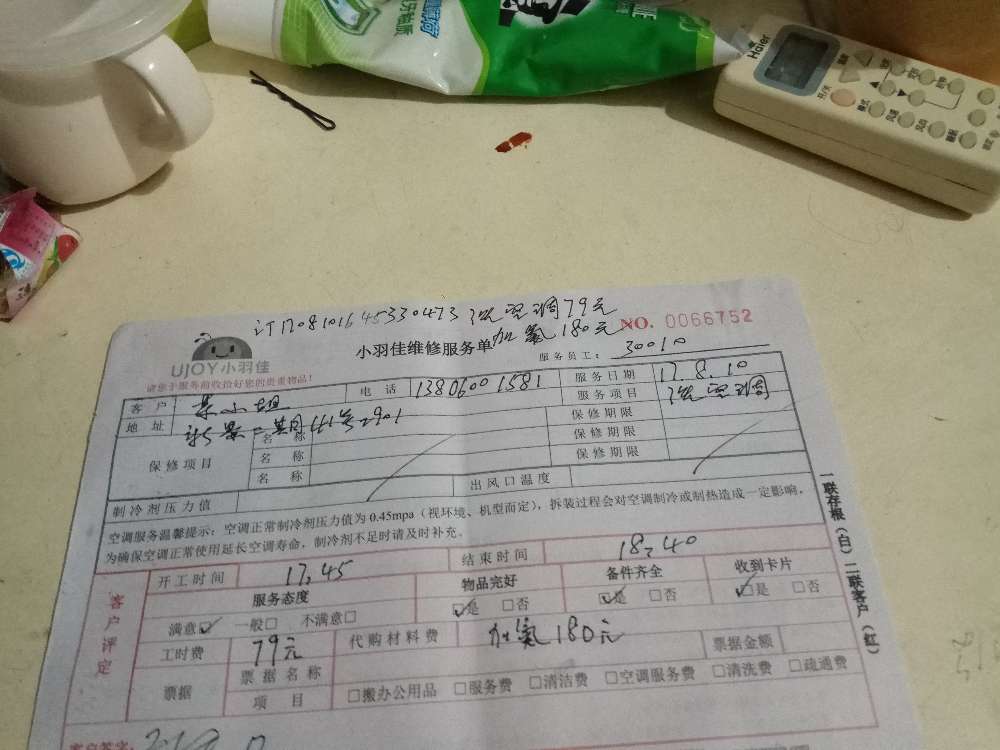 Haier
开/关
模式
风速
风向
睡眠
订170810164533 0473 洗空调79元
加氟180元
NO. 0066752
小羽佳维修服务单
服务员工: 30010
UJOY小羽佳
请您于服务前收拾好您的贵重物品!
客户 电话 13806001581 服务日期 17.8.10
地址 服务项目 洗空调
保修项目 名称 保修期限
名称 保修期限
名称 保修期限
制冷剂压力值 出风口温度
空调服务温馨提示: 空调正常制冷剂压力值为0.45mpa(视环境、机型而定), 拆装过程会对空调制冷或制热造成一定影响,
为确保空调正常使用延长空调寿命, 制冷剂不足时请及时补充.
开工时间 17.45 结束时间 18.40
客户评定
服务态度 物品完好 备件齐全 收到卡片
满意☑ 一般□ 不满意□ ☑是 □否 ☑是 □否 ☑是 □否
工时费 79元 代购材料费 加氟180元 票据金额
票据 票据名称
项目 □搬办公用品 □服务费 □清洁费 □空调服务费 □清洗费 □疏通费
客户签字:
一联存根(白) 二联客户(红)